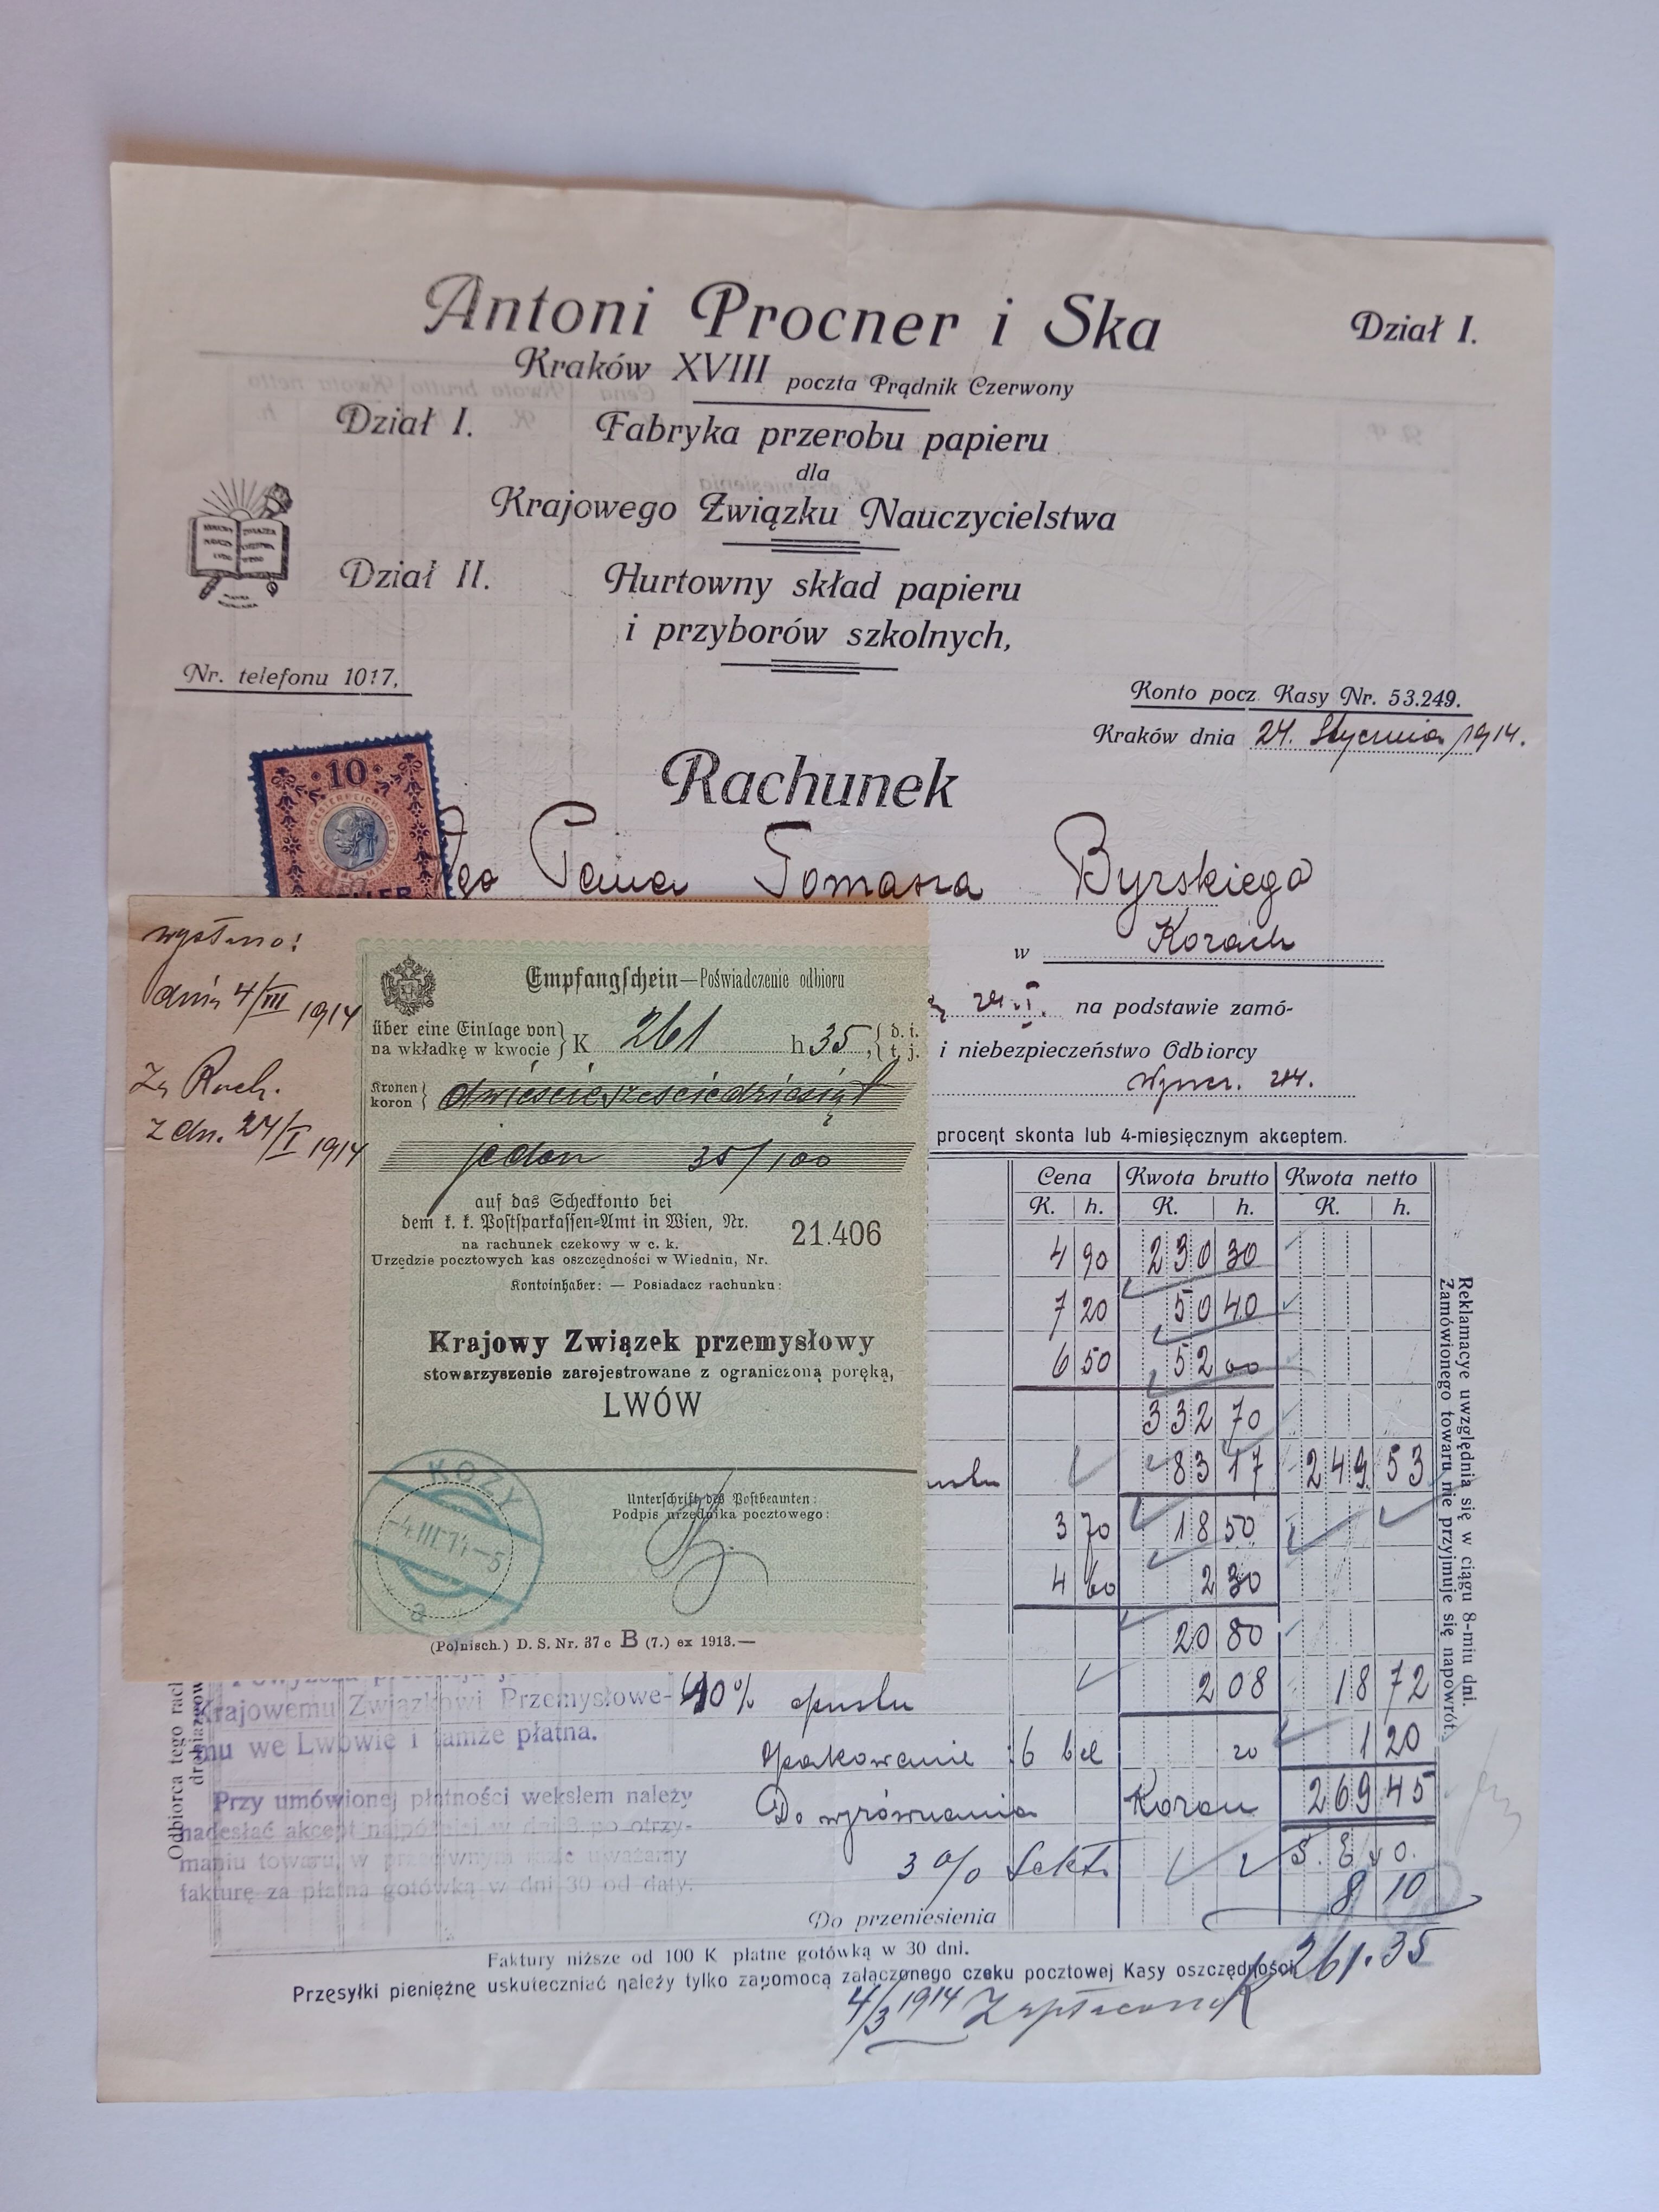 Antoni Procner i Ska
Dział I.
Kraków XVIII poczta Prądnik Czerwony
Dział I. Fabryka przerobu papieru
dla
Krajowego Związku Nauczycielstwa
Dział II. Hurtowny skład papieru
i przyborów szkolnych,
Nr. telefonu 1017.
Konto pocz. Kasy Nr. 53.249.
Kraków dnia 24. Stycznia 1914.
10
Rachunek
Pana Tomasza Byrskiego
w Kozach
na podstawie zamó-
i niebezpieczeństwo Odbiorcy
procent skonta lub 4-miesięcznym akceptem.
wysłano!
dnia 4/III 1914
Za Rach.
z dn. 24/I 1914
Empfangschein—Poświadczenie odbioru
über eine Einlage von
na wkładkę w kwocie K 261 h 35, d. i. t. j.
Kronen
koron dwieście sześćdziesiąt
jeden 35/100
auf das Scheckkonto bei
dem k. k. Postsparkassen-Amt in Wien, Nr.
na rachunek czekowy w c. k.
Urzędzie pocztowych kas oszczędności w Wiedniu, Nr.
21.406
Kontoinhaber: — Posiadacz rachunku:
Krajowy Związek przemysłowy
stowarzyszenie zarejestrowane z ograniczoną poręką,
LWÓW
KOZY
a
Unterschrift des Postbeamten:
Podpis urzędnika pocztowego:
(Polnisch.) D. S. Nr. 37 c B (7.) ex 1913.—
Cena Kwota brutto Kwota netto
K. h. K. h. K. h.
4 90 230 30
7 20 50 40
6 50 52 00
332 70
83 17 249 53
3 70 18 50
4 60 2 30
20 80
10% opustu 2 08 18 72
Opakowanie 6 20 1 20
Do wyrównania Koron 269 45
S. E. o.
3% 8 10
Do przeniesienia
261.35
Krajowemu Związkowi Przemysłowe-
mu we Lwowie i tamże płatna.
Przy umówionej płatności wekslem należy
nadesłać akcept najpóźniej w dni 8 po otrzy-
maniu towaru, w przeciwnym razie uważamy
fakturę za płatną gotówką w dni 30 od daty.
Odbiorca tego
Reklamacye uwzględnia się w ciągu 8-miu dni.
Zamówionego towaru nie przyjmuje się napowrót.
Faktury niższe od 100 K płatne gotówką w 30 dni.
Przesyłki pieniężne uskuteczniać należy tylko zapomocą załączonego czeku pocztowej Kasy oszczędności.
4/3 1914 Zapłacono